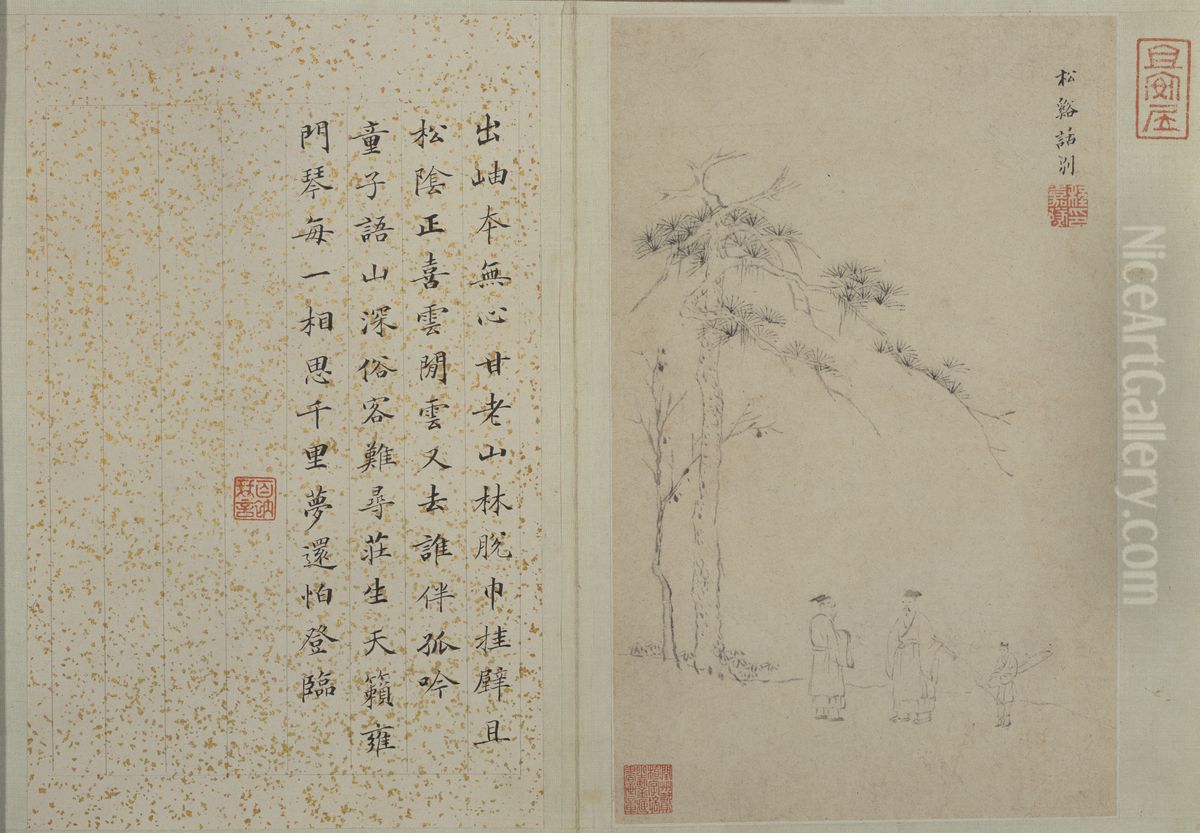 松谿話別
出岫本無心甘老山林脫巾挂壁且
松陰正喜雲閒雲又去誰伴孤吟
童子語山深俗客難尋莊生天籟雍
門琴每一相思千里夢還怕登臨
NiceArtGallery.com